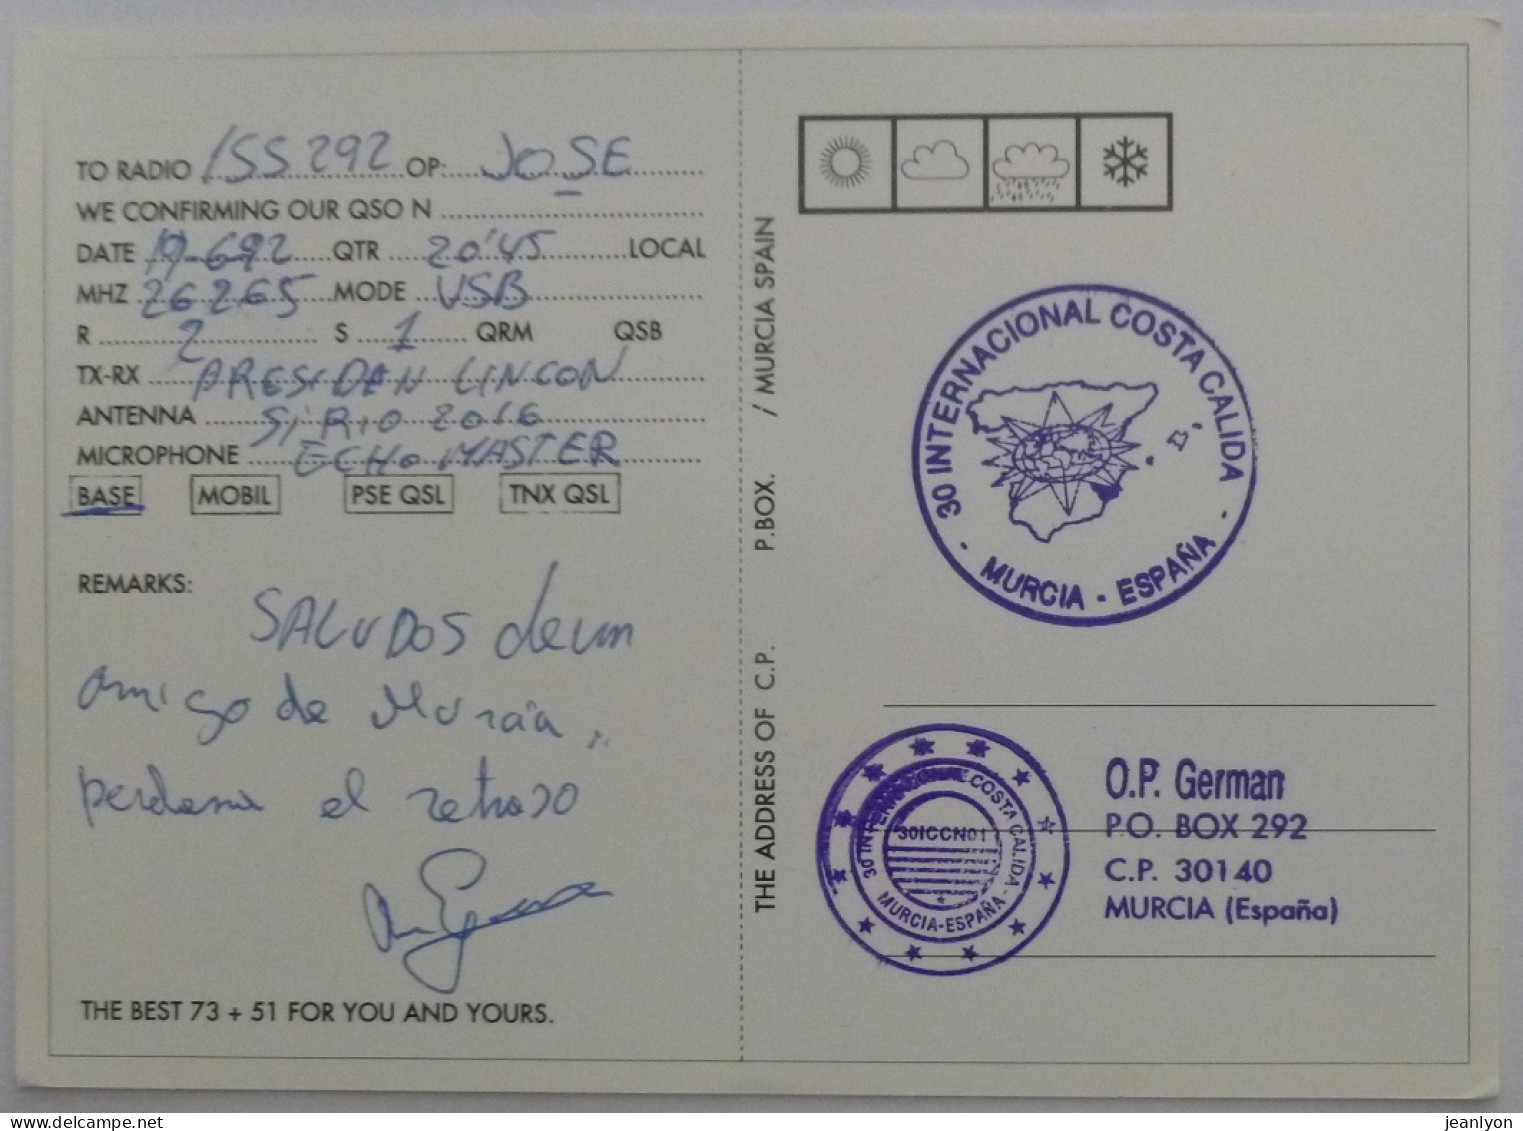 TO RADIO 1SS292 OP: JOSE
WE CONFIRMING OUR QSO N
DATE 19-692 QTR 20'45 LOCAL
MHZ 26265 MODE USB
R 2 S 1 QRM QSB
TX-RX PRESIDEN LINCON
ANTENNA SIRIO 2016
MICROPHONE ECHO MASTER
BASE MOBIL PSE QSL TNX QSL
REMARKS:
SALUDOS de un
amigo de Murcia,
perdona el retraso
THE BEST 73 + 51 FOR YOU AND YOURS.
THE ADDRESS OF C.P. P.BOX. / MURCIA SPAIN
30 INTERNACIONAL COSTA CALIDA
- MURCIA - ESPAÑA -
30 INTERNACIONAL COSTA CALIDA
30ICCN01
MURCIA-ESPAÑA-
O.P. German
P.O. BOX 292
C.P. 30140
MURCIA (España)
www.delcampe.net
jeanlyon